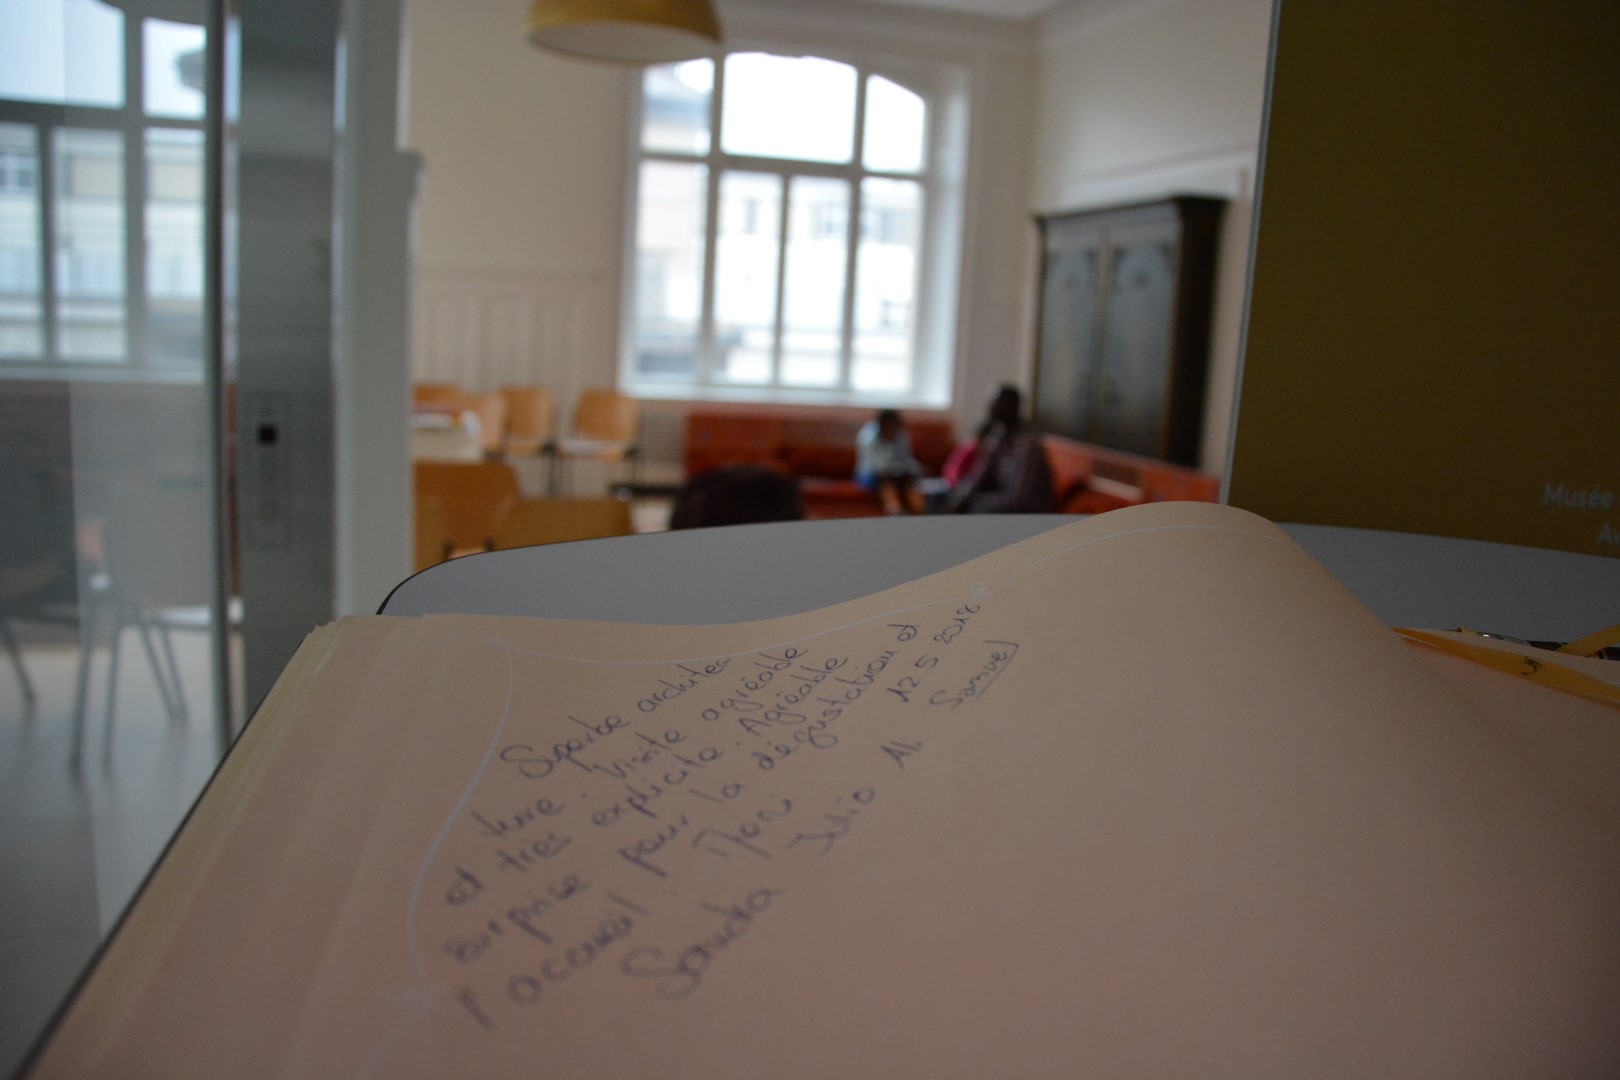 Superbe architec
ture. Visite agréable
et très explicite. Agréable
surprise pour la dégustation et
l'accueil Merci 12-5 2018
Sandra Julio Al. Samuel
Musée
Av